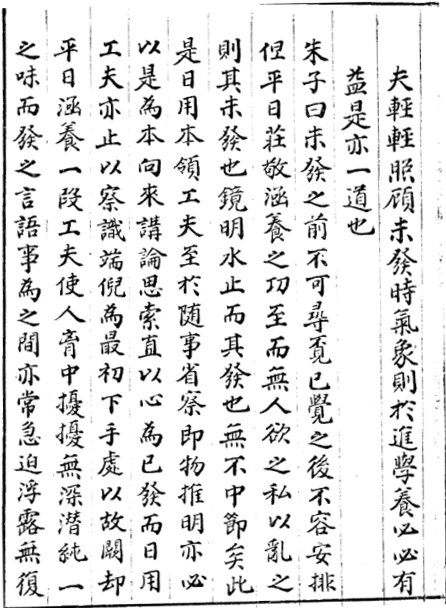 夫輕輕照顧未發時氣象則於進學養心必有
益是亦一道也
朱子曰未發之前不可尋覓已覺之後不容安排
但平日莊敬涵養之功至而無人欲之私以亂之
則其未發也鏡明水止而其發也無不中節矣此
是日用本領工夫至於随事省察即物推明亦必
以是為本向來講論思索直以心為已發而日用
工夫亦止以察識端倪為最初下手處以故闕却
平日涵養一段工夫使人胷中擾擾無深潜純一
之味而發之言語事為之間亦常急迫浮露無復